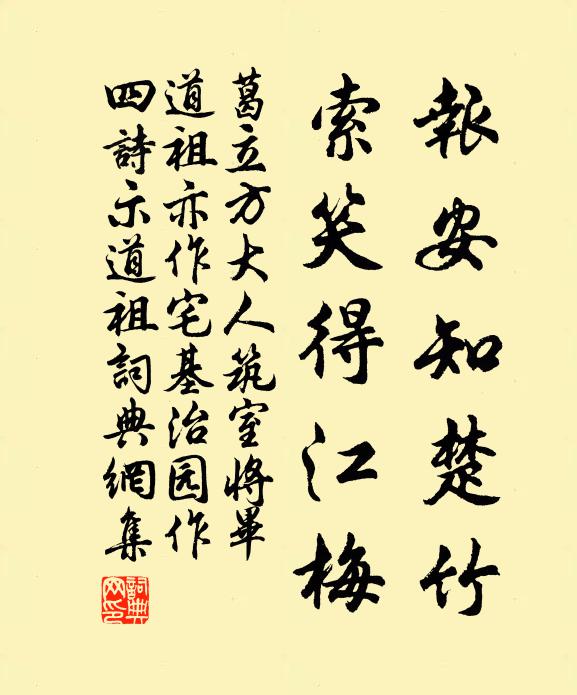 報安知楚竹
索笑得江梅
葛立方大人筑室將畢
道祖亦作宅基治园作
四詩示道祖詞典網集
詞典
网印